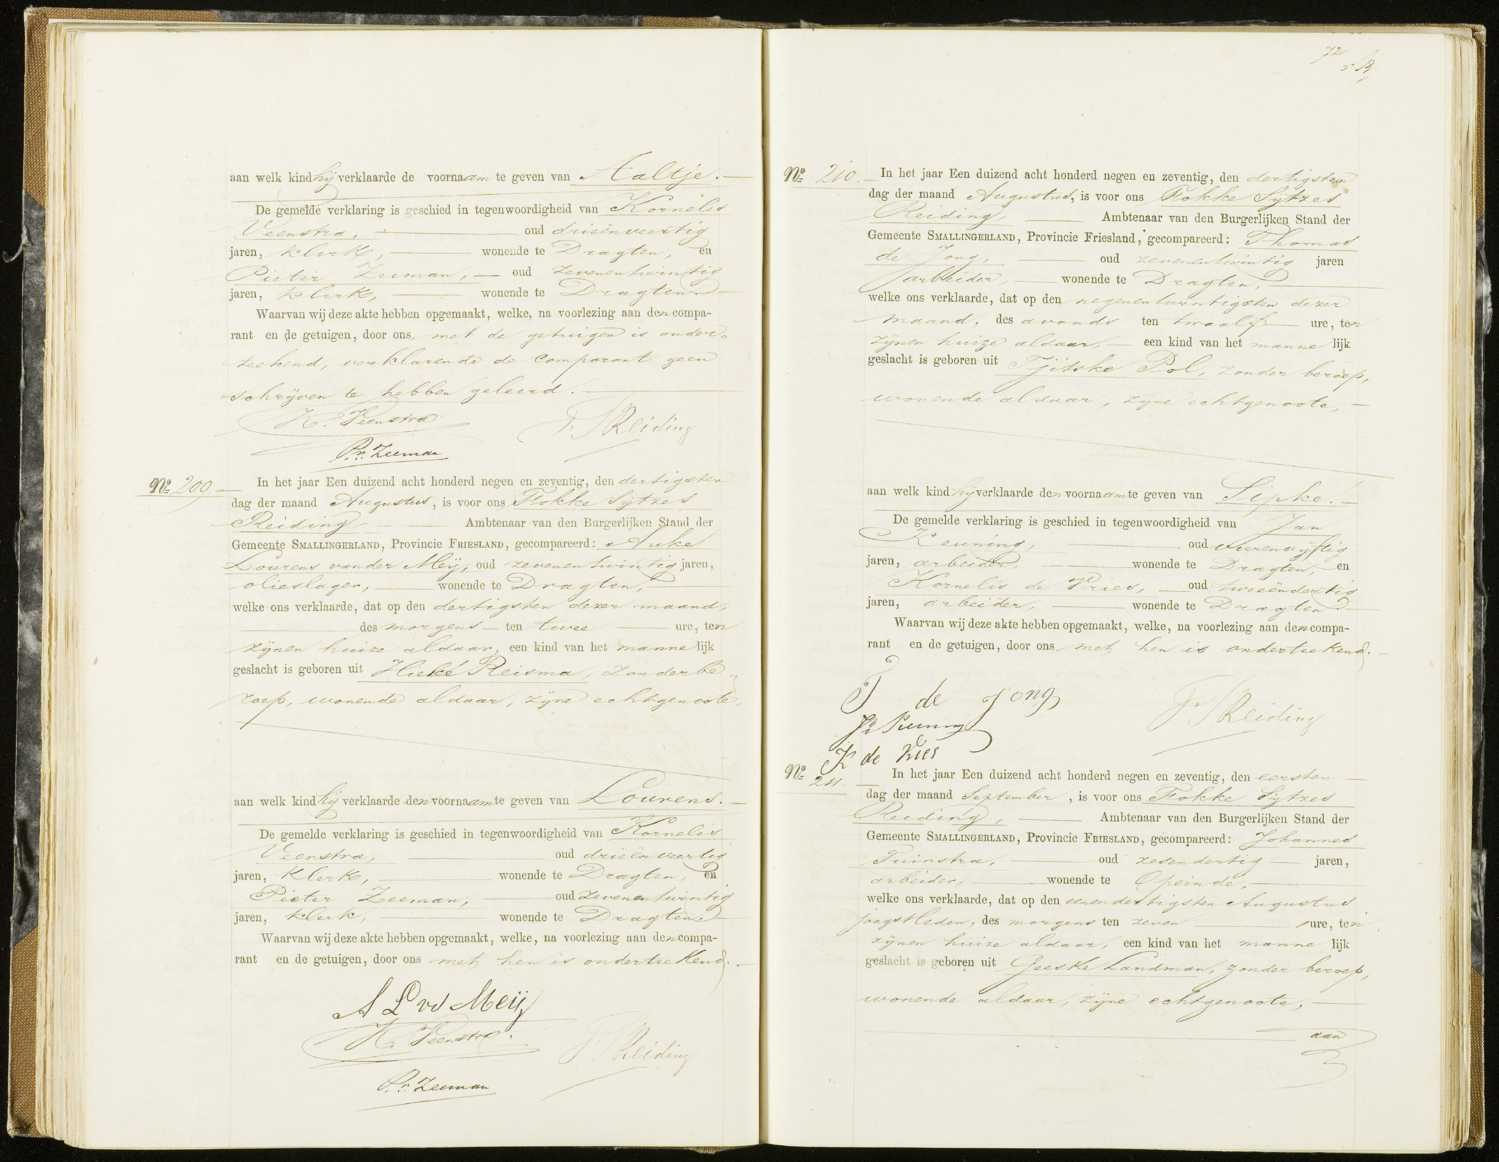 aan welk kind hij verklaarde de voornaam te geven van Aaltje.
De gemelde verklaring is geschied in tegenwoordigheid van Kornelis
Veenstra, oud drieënveertig
jaren, klerk, wonende te Dragten, en
Pieter Zeeman, oud zevenentwintig
jaren, klerk, wonende te Dragten
Waarvan wij deze akte hebben opgemaakt, welke, na voorlezing aan den compa-
rant en de getuigen, door ons met de getuigen is onder-
teekend, verklarende de comparant geen
schrijven te hebben geleerd.
K. Veenstra F S Reiding
Pr. Zeeman
No. 209 In het jaar Een duizend acht honderd negen en zeventig, den dertigsten
dag der maand Augustus, is voor ons Fokke Sytzes
Reiding Ambtenaar van den Burgerlijken Stand der
Gemeente SMALLINGERLAND, Provincie FRIESLAND, gecompareerd: Auke
Lourens van der Meij, oud zevenentwintig jaren,
olieslager, wonende te Dragten,
welke ons verklaarde, dat op den dertigsten dezer maand,
des morgens ten twee ure, ten
zijnen huize aldaar, een kind van het mannelijk
geslacht is geboren uit Hieke Reisma, zonder be-
roep, wonende aldaar, zijne echtgenoote,
aan welk kind hij verklaarde den voornaam te geven van Lourens.
De gemelde verklaring is geschied in tegenwoordigheid van Kornelis
Veenstra, oud drieënveertig
jaren, klerk, wonende te Dragten, en
Pieter Zeeman, oud zevenentwintig
jaren, klerk, wonende te Dragten
Waarvan wij deze akte hebben opgemaakt, welke, na voorlezing aan den compa-
rant en de getuigen, door ons met hen is onderteekend.
A L vd Meij
K. Veenstra. F S Reiding
Pr. Zeeman
72
No. 210. In het jaar Een duizend acht honderd negen en zeventig, den dertigsten
dag der maand Augustus, is voor ons Fokke Sytzes
Reiding, Ambtenaar van den Burgerlijken Stand der
Gemeente SMALLINGERLAND, Provincie Friesland, gecompareerd: Thomas
de Jong, oud zevenentwintig jaren
arbeider, wonende te Dragten,
welke ons verklaarde, dat op den negenentwintigsten dezer
maand, des avonds ten twaalf ure, ten
zijnen huize aldaar, een kind van het mannelijk
geslacht is geboren uit Tjitske Pol, zonder beroep,
wonende aldaar, zijne echtgenoote,
aan welk kind hij verklaarde den voornaam te geven van Sipke.
De gemelde verklaring is geschied in tegenwoordigheid van Jan
Keuning, oud vierenvijftig
jaren, arbeider, wonende te Dragten, en
Kornelis de Vries, oud tweeëndertig
jaren, arbeider, wonende te Dragten
Waarvan wij deze akte hebben opgemaakt, welke, na voorlezing aan den compa-
rant en de getuigen, door ons met hen is onderteekend.
T de Jong
Keuning F S Reiding
K de Vries
No. 211. In het jaar Een duizend acht honderd negen en zeventig, den eersten
dag der maand September, is voor ons Fokke Sytzes
Reiding, Ambtenaar van den Burgerlijken Stand der
Gemeente SMALLINGERLAND, Provincie FRIESLAND, gecompareerd: Johannes
Tuinstra, oud zesendertig jaren,
arbeider, wonende te Opeinde,
welke ons verklaarde, dat op den eenendertigsten Augustus
jongstleden, des morgens ten zeven ure, ten
zijnen huize aldaar, een kind van het mannelijk
geslacht is geboren uit Geeske Landman, zonder beroep,
wonende aldaar, zijne echtgenoote,
aan